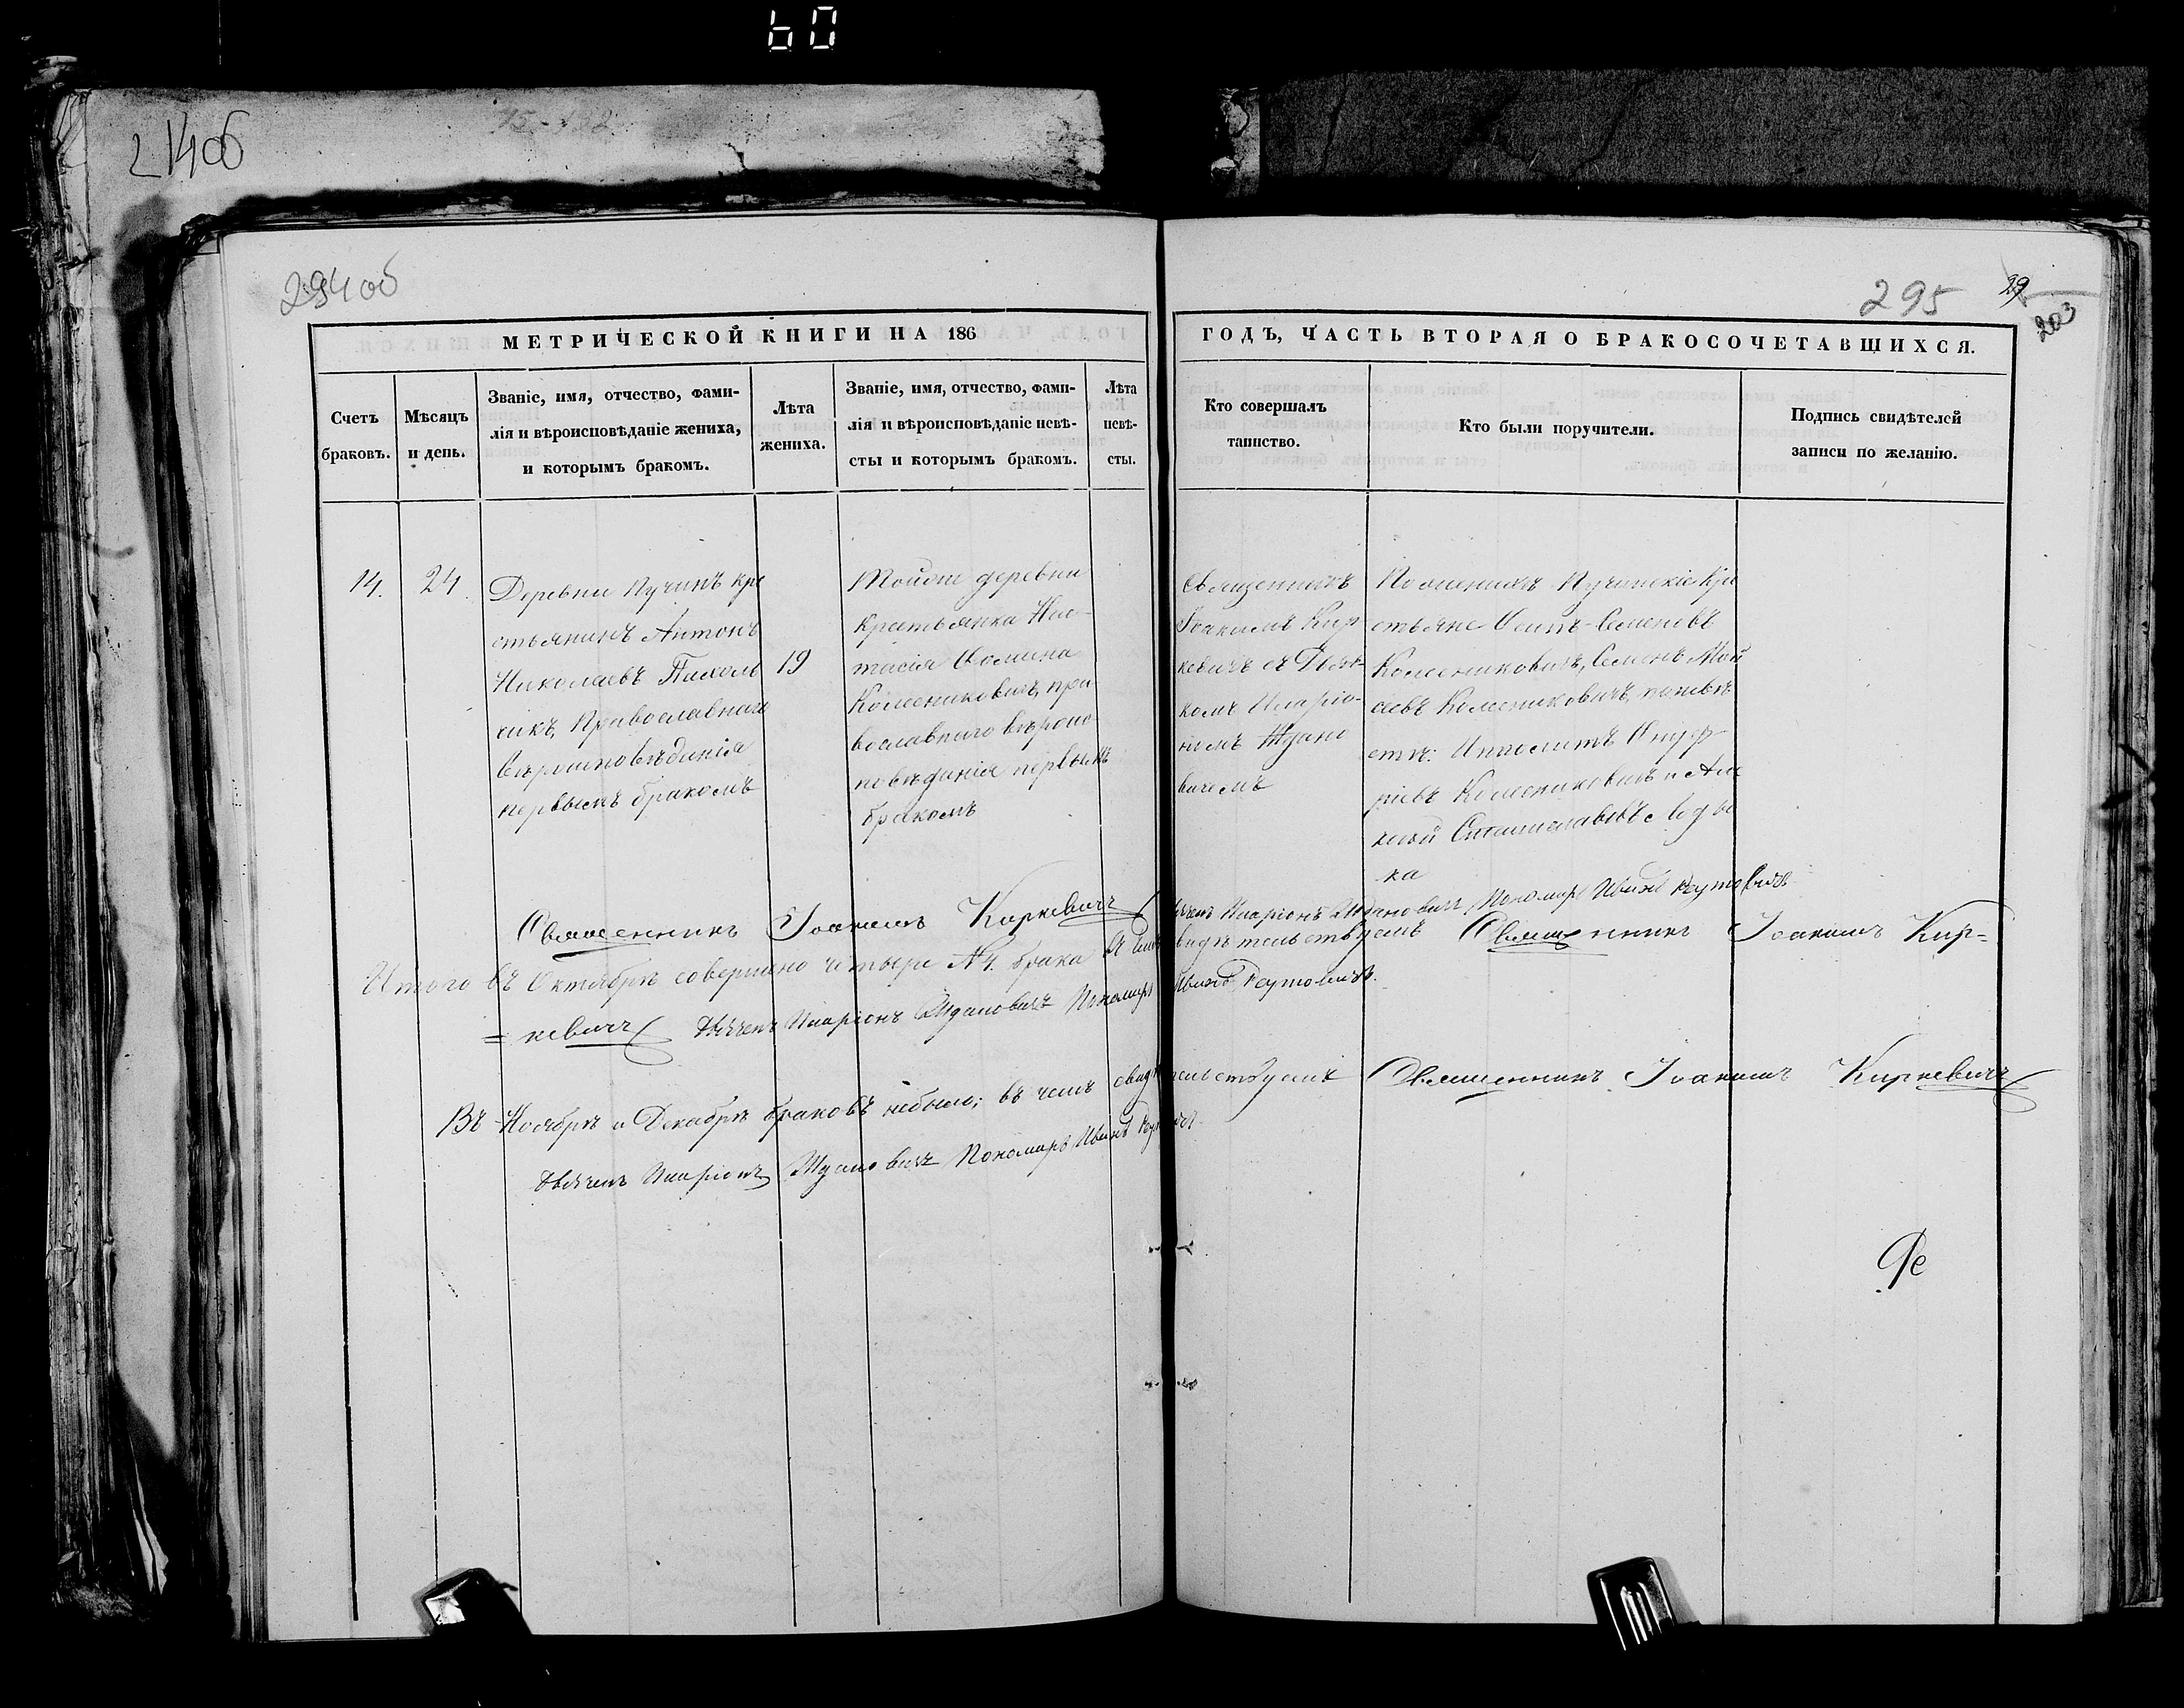 60
214об
294об
295
29
203
МЕТРИЧЕСКОЙ КНИГИ НА 186
ГОДЪ, ЧАСТЬ ВТОРАЯ О БРАКОСОЧЕТАВШИХСЯ.
Счетъ браковъ.
Мѣсяцъ и день.
Званіе, имя, отчество, фами-
лія и вѣроисповѣданіе жениха,
и которымъ бракомъ.
Лѣта жениха.
Званіе, имя, отчество, фами-
лія и вѣроисповѣданіе невѣ-
сты и которымъ бракомъ.
Лѣта невѣ-
сты.
Кто совершалъ
таинство.
Кто были поручители.
Подпись свидѣтелей
записи по желанію.
14.
24.
Деревни Пучинъ кре
стьянинъ Антонъ
Николаевъ
Православнаго
вѣроисповѣданія
первымъ бракомъ
19
Тойже деревни
крестьянка Нас-
тасія Фомина
Колесниковичъ, пра
вославнаго вѣроис
повѣданія первымъ
бракомъ
Священникъ
Іоакимъ Кир
кевичъ съ Дьяч-
комъ Иларіо-
номъ Ждано
вичемъ
По женихѣ Пучинскіе Кре
стьяне Осипъ Семеновъ
Колесниковичъ, Семенъ Мои
сеевъ Колесниковичъ, по невѣ
стѣ: Ипполитъ Онуф
ріевъ Колесниковичъ и Але
ксѣй Станиславовъ Лоды
ка
Священникъ Іоакимъ Киркевичъ Дьячекъ Иларіонъ Ждановичъ Пономарь Иванъ Реутовичъ
Итого въ Октябрѣ совершено четыре №4. брака въ чемъ свидѣтельствуемъ Священникъ Іоакимъ Кир=
=кевичъ Дьячекъ Иларіонъ Ждановичъ Пономарь Иванъ Реутовичъ.
Въ Ноябрѣ и Декабрѣ браковъ небыло; въ чемъ свидѣтельствуемъ Священникъ Іоакимъ Киркевичъ
Дьячекъ Иларіонъ Ждановичъ Пономарь Иванъ Реутовичъ